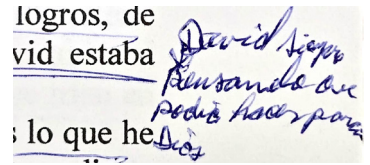 logros, de
vid estaba
lo que he
David siempre
pensando que
podia hacer para
Dios